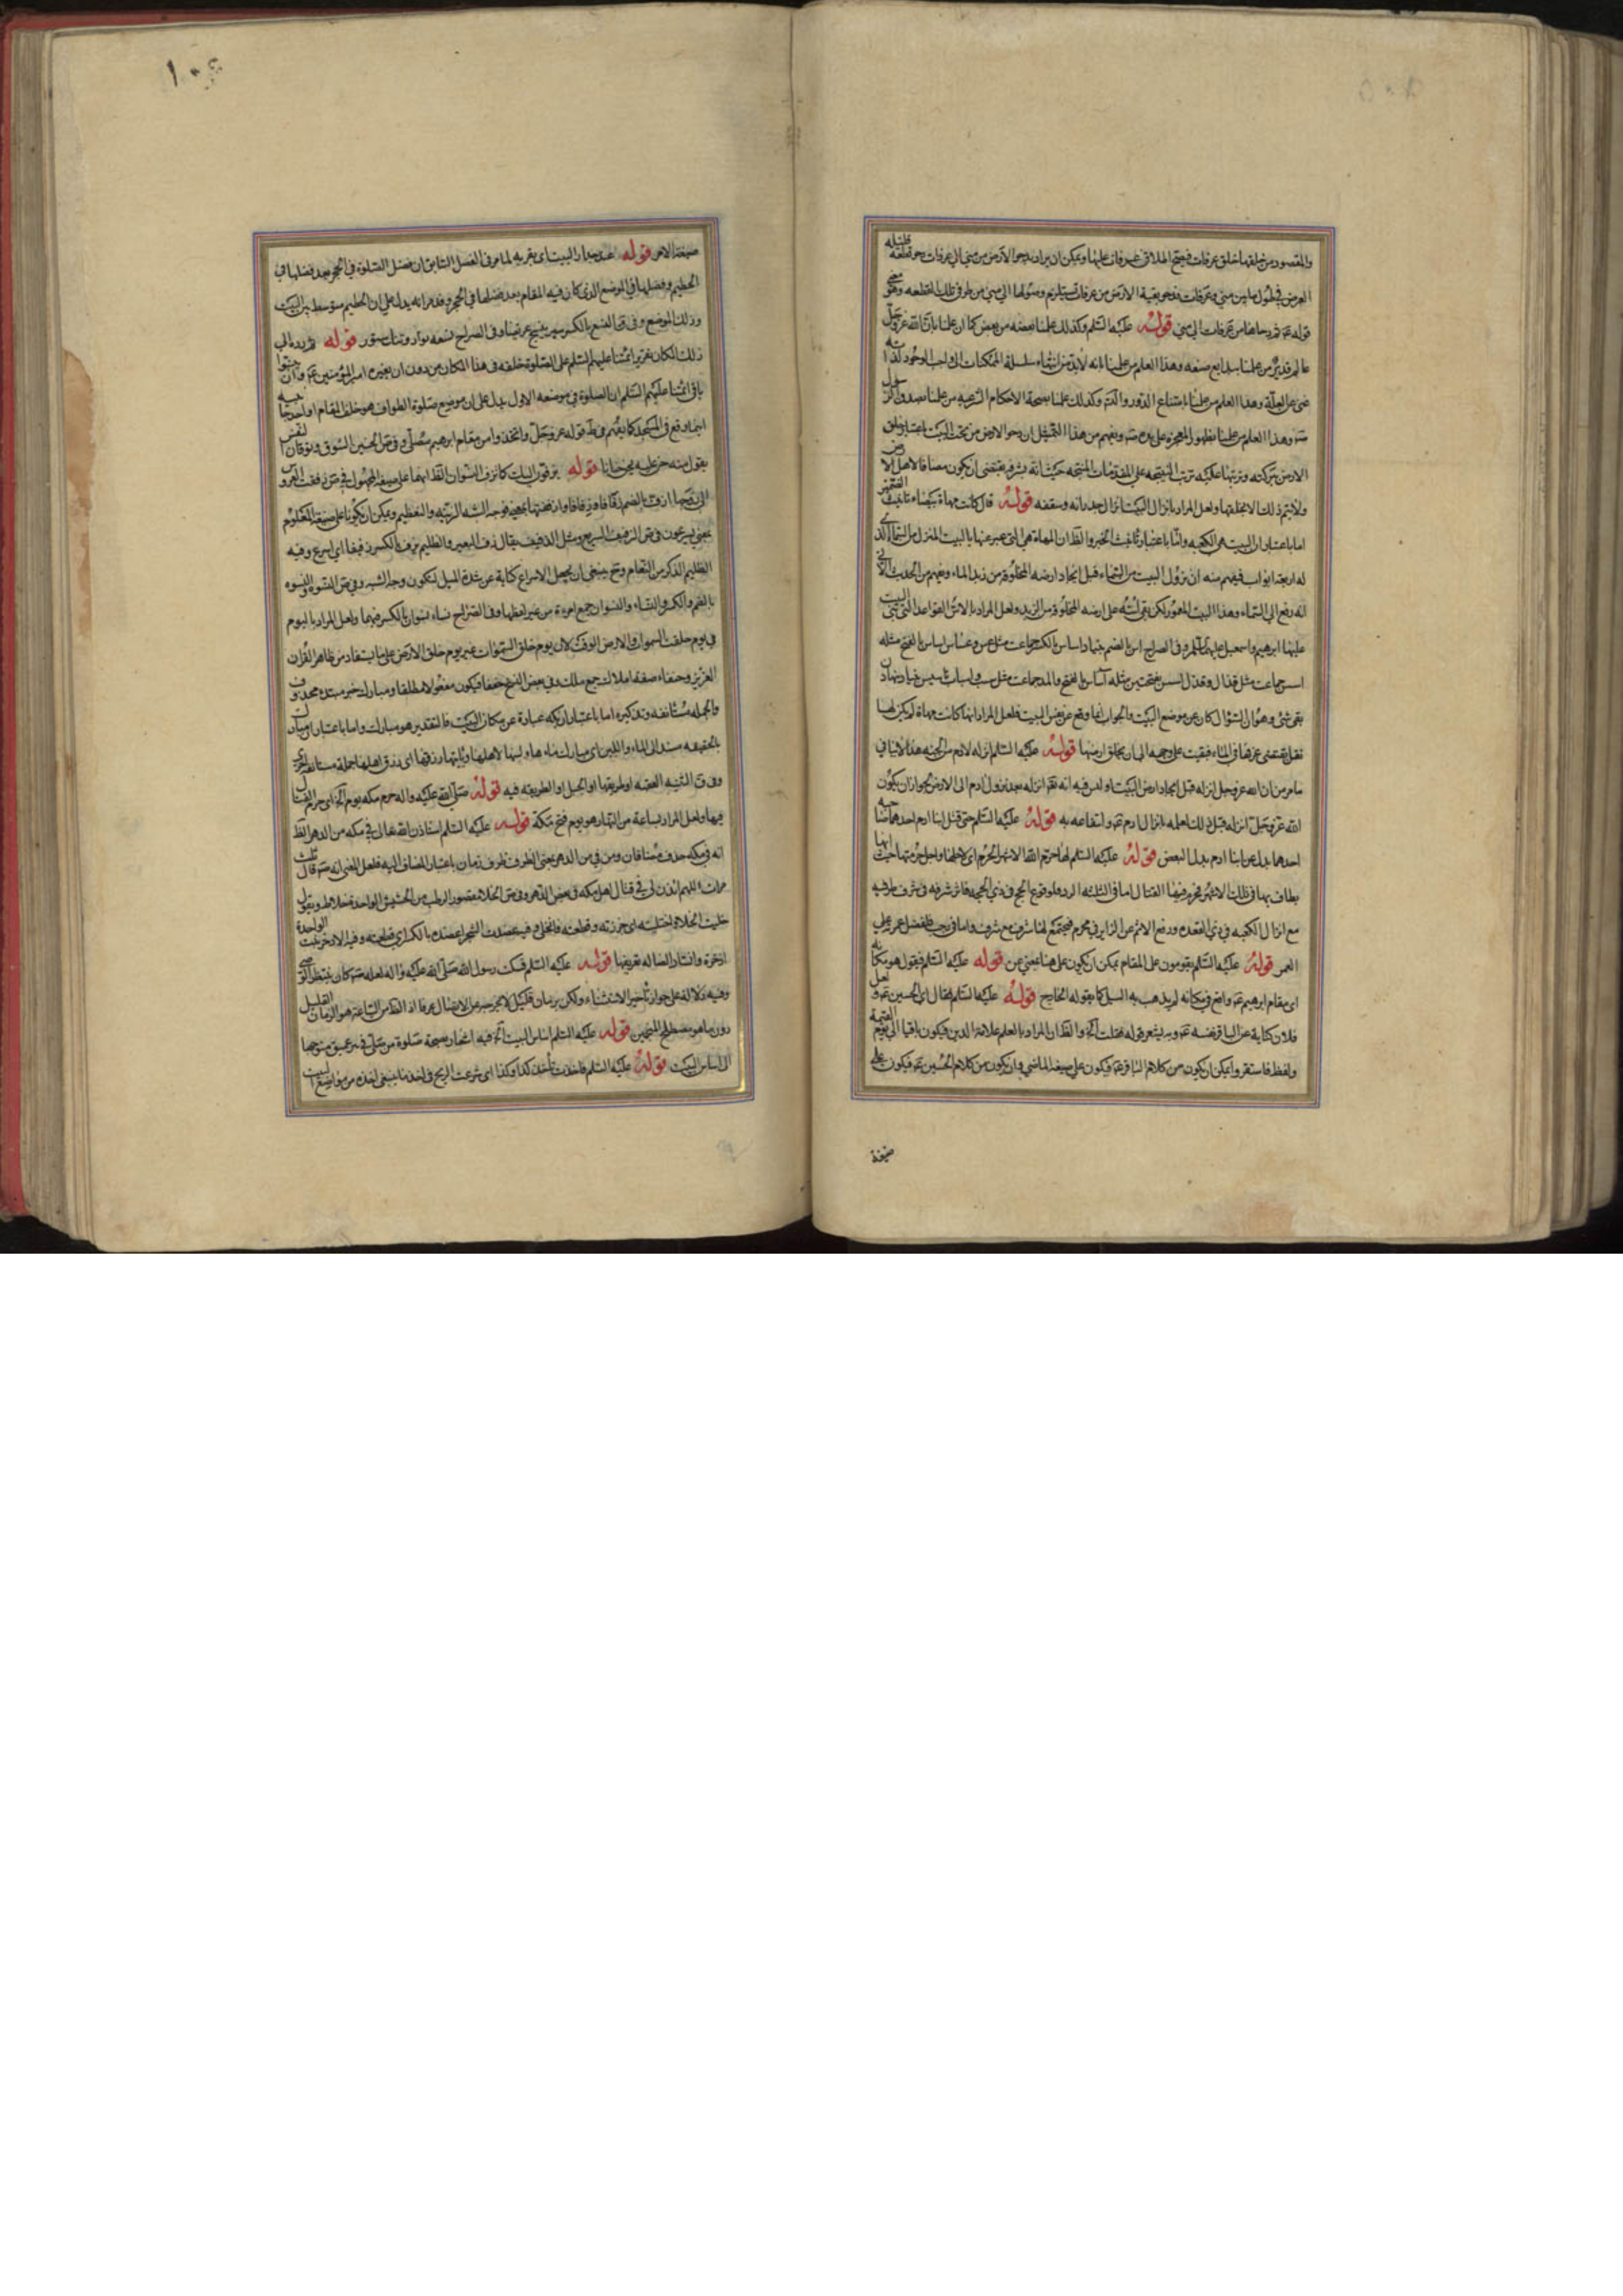 والمقصود من خلقها خلق عرفات فيصح اطلاق عرفات عليها ويمكن ان يراد بدحو الارض من منى الى عرفات دحو قطعة قليلة
العرض في طول ما بين منى وعرفات ودحو بقية الارض من عرفات
قوله ع ثم دحاها من عرفات الى منى قوله عليه السلم وكذلك علمنا بعضه من بعض كما ان علمنا بان الله عز وجل
عالم قدير من علمنا ببدايع صنعه وهذا العلم من علمنا بانه لابد من انتهاء سلسلة الممكنات الى واجب الوجود لذاته
غنى عن العلة وهذا العلم من علمنا بامتناع الدور والتسم وكذلك علمنا بصحة الاحكام الشرعية من علمنا بصدق الرسول
ص وهذا العلم من علمنا بظهور المعجزة على يده ص ويفهم من هذا التمثيل ان دحو الارض من تحت البيت باعتبار خلق
الارض من بركته وترتبها عليه ترتب النتيجة على المقدمات المنتجة حيث انه بشرفه يقتضى ان يكون مضافا لاهل الارض
ولا يتم ذلك الا بخلقها ولعل المراد بانزال البيت انزال جدرانه وسقفه قوله قال كانت مهاة بيضاء تانيث الضمير
اما باعتبار ان البيت هى الكعبة واما باعتبار تانيث الخبر والظ ان المهاة هى التى عبر عنها بالبيت المنزل من السماء الذى
له اربعة ابواب فيفهم منه ان نزول البيت من السماء قبل ايجاد ارضه المخلوقة من زبد الماء ويفهم من الحديث الاتى
انه رفع الى السماء وهذا البيت المعمور لكن بقى اسه على ارضه المخلوقة من الزبد ولعل المراد بالاس القواعد التى بنى البيت
عليها ابراهيم واسمعيل عليهما السلم وفى الصراح اس بالضم بنياد اساس بالكسر جماعت مثل عس وعساس اساس بالفتح مثله
اسس جماعت مثل قذال وقذل اسس بفتحتين مثله آساس بالفتح والمد جماعت مثل سبب واسباب تاسيس بنياد نهادن
بقى شئ وهو ان السؤال كان عن موضع البيت والجواب انما وقع عن نفس البيت فلعل المراد انها كانت مهاة لم يكن لها
ثقل يقتضى غرقها فى الماء فبقيت على وجهه الى ان يخلق ارضها قوله عليه السلم انزله لادم من الجنة هذا لا ينافى
ما مر من ان الله عز وجل انزله قبل ايجاد ارض البيت اذ ليس فيه انه تع انزله بعد نزول ادم الى الارض لجواز ان يكون
الله عز وجل انزله قبل ذلك لعلمه بانزال ادم ع وانتفاعه به قوله عليه السلم حتى قتل ابنا ادم احدهما صاحبه
احدهما بدل عن ابنا ادم بدل البعض قوله عليه السلم لها حرم الله الاشهر الحرم اى لاجلها ولاجل حرمتها حيث انها
يطاف بها فى تلك الاشهر فحرم فيها القتال اما فى الثلثة السرد فلوقوع الحج فى ذى الحجة
مع انزال الكعبة فى ذى القعدة ودفع الاثم عن الزاير فى محرم فيجتمع لها شرف مع شرف واما فى رجب فلفضل عمرته على
العمر قوله عليه السلم يقومون على المقام يمكن ان يكون على هنا بمعنى عن قوله عليه السلم فيقول هو مكانه
اى مقام ابراهيم ع واقع فى مكانه لم يذهب به السيل كما يقوله الخارج قوله عليه السلم فقال اى الحسين ع ولعل
فلان كناية عن الباقر نفسه ع ويشعر قوله فقلت آخ والظ ان المراد بالعلم علامة الدين فيكون باقيا الى يوم القيمة
ولفظ فاستقروا يمكن ان يكون من كلام الباقر ع فيكون على صيغة الماضى وان يكون من كلام الحسين ع فيكون على
صيغة
صيغة الامر قوله عند جدار البيت اى بقربه لما مر فى الفصل السابق ان فضل الصلوة فى الحجر بعد فضلها فى
الحطيم وفضلها فى الموضع الذى كان فيه المقام بعد فضلها فى الحجر وقد مر انه يدل على ان الحطيم متوسط بين البيت
وذلك الموضع وفى ق النسع بالكسر سير ينسج عريضا وفى الصراح نسعه نوار وتنك ستور قوله ثم رده الى
ذلك المكان تقرير ائمتنا عليهم السلم على الصلوة خلفه فى هذا المكان من دون ان يغيره امير المؤمنين ع وان حثوا
باقى ائمتنا عليهم السلم ان الصلوة فى موضعه الاول يدل على ان موضع صلوة الطواف هو خلف المقام او احد جانبيه
اينما وقع فى المسجد كما يفهم من ظ قوله عز وجل واتخذوا من مقام ابراهيم مصلى وفى ص الحنين الشوق وتوقان النفس
يقول منه حن عليه يحن حنانا قوله يزفون البيت كما تزف النسوان الظ انهما على صيغة المجهول فى ص زففت العروس
الى زوجها ازف بالضم زفا وزفافا وازففتها بمعنى فوجه الشبه الزينة والتعظيم ويمكن ان يكونا على صيغة المعلوم
بمعنى يسرعون فى ص الزفيف السريع مثل الذفيف يقال زف البعير والظليم يزف بالكسر زفيفا اى اسرع وفيه
الظليم الذكر من النعام وح ينبغى ان يجعل الاسراع كناية عن شدة الميل لتكون وجه الشبه وفى ص النسوة والنسوه
بالضم والكسر والنساء والنسوان جمع امرءة من غير لفظها وفى الصراح نساء نسوان بالكسر فيهما ولعل المراد باليوم
فى يوم خلقت السموات والارض الوقت لان يوم خلق السموات غير يوم خلق الارض على ما يستفاد من ظاهر القران
العزيز وحنفاء صفة املاك جمع ملك وفى بعض النسخ حففا فيكون مفعولا مطلقا ومبارك خبر مبتدء محذوف
والجملة مستانفة وتذكيره اما باعتبار ان بكة عبارة عن مكان البيت فالتقدير هو مبارك واما باعتبار ان مبارك
بالحقيقة مسند الى الماء واللبن اى مبارك ماءها ولبنها لاهلها وياتيها رزقها اى رزق اهلها جملة مستانفة اخرى
وفى ق الثنية العقبة او طريقها او الجبل او الطريقة فيه قوله صلى الله عليه واله حرم مكة يوم آخ اى حرم القتال
فيها ولعل المراد بساعة من النهار هو يوم فتح مكة قوله عليه السلم استاذن الله تعالى فى مكة من الدهر الظ
انه فى مكة حذف مضافان ومن فى من الدهر بمعنى الظرف ظرف زمان باعتبار المضاف اليه فلعل المعنى انه ص قال ثلث
مرات اللهم ائذن لى فى قتال اهل مكة فى بعض الدهر وفى ص الخلا مقصور الرطب من الحشيش الواحدة خلاة ويقول
خليت الخلاة واختليته اى جززته وقطعته فانخلى وفيه عضدت الشجر اعضده بالكسر اى قطعته وفيه الاذخر نبت الواحدة
اذخرة وانشاد الضالة تعريفها قوله عليه السلم فسكت رسول الله صلى الله عليه واله لعله ص كان ينتظر الوحى
وفيه دلالة على جواز تاخير الاستثناء ولكن بزمان قليل لا يخرجه عن الاتصال عرفا اذ الظ من الساعة هو الزمان القليل
دون ما هو مصطلح المنجمين قوله عليه السلم اساس البيت آخ فيه اشعار بصحة صلوة من صلى فى بئر عميق متوجها
الى اساس البيت قوله عليه السلم فاخذت تأخذ كذا وكذا اى شرعت الريح فى اخذ ما ينبغى اخذه من مواضع البيت